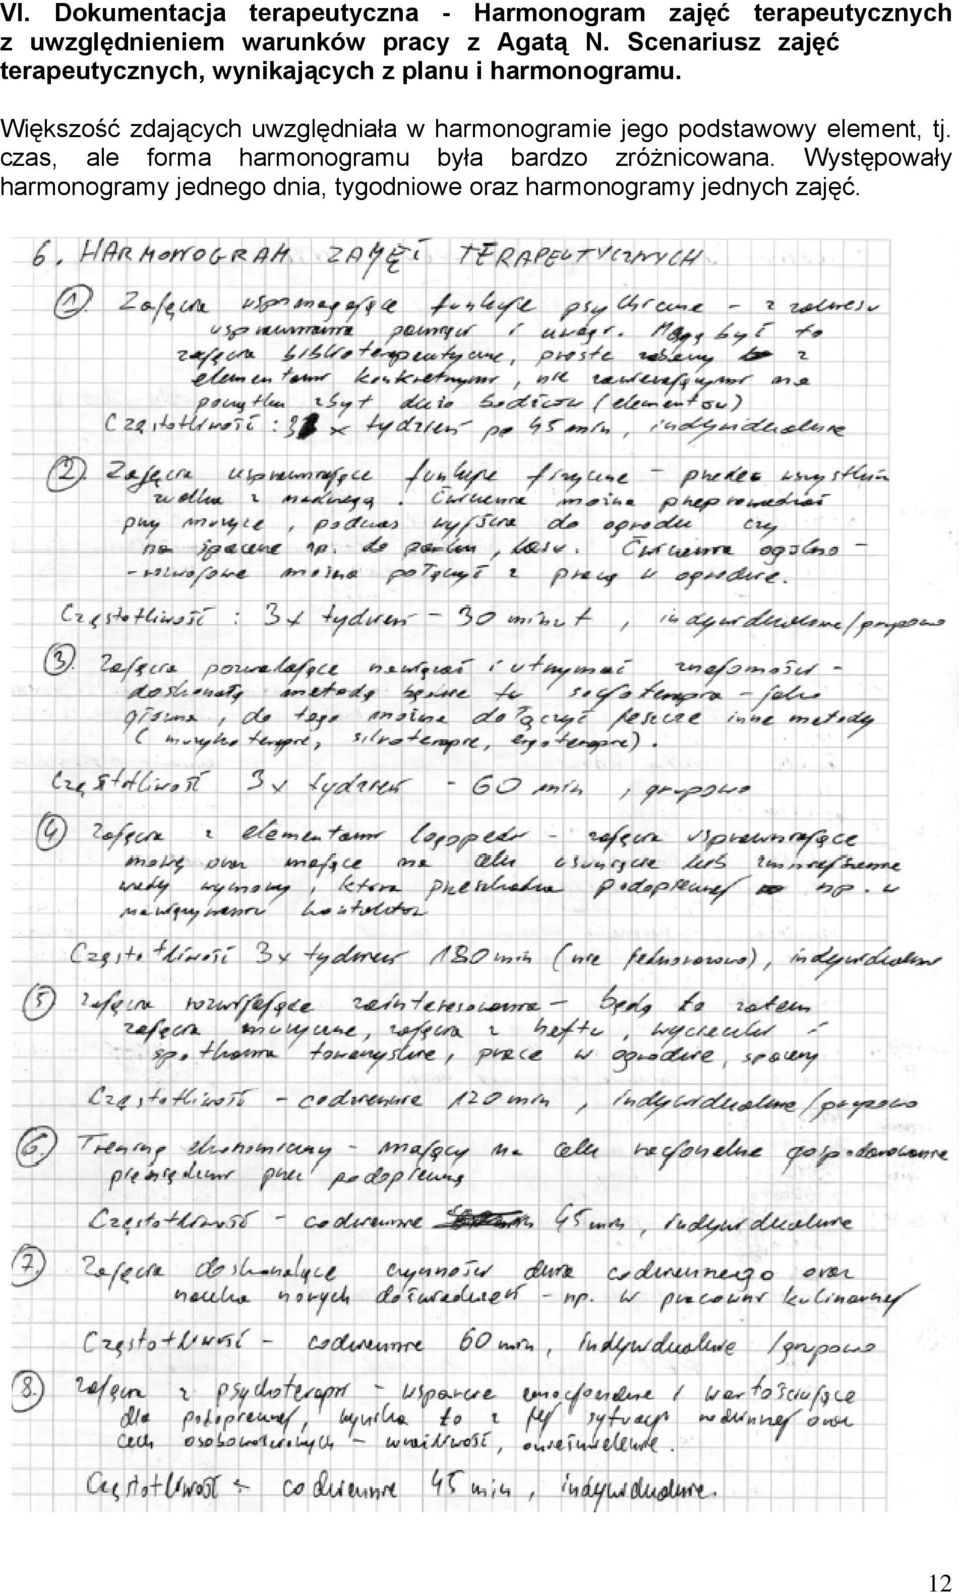 VI. Dokumentacja terapeutyczna - Harmonogram zajęć terapeutycznych
z uwzględnieniem warunków pracy z Agatą N. Scenariusz zajęć
terapeutycznych, wynikających z planu i harmonogramu.
Większość zdających uwzględniała w harmonogramie jego podstawowy element, tj.
czas, ale forma harmonogramu była bardzo zróżnicowana. Występowały
harmonogramy jednego dnia, tygodniowe oraz harmonogramy jednych zajęć.
6. HARMONOGRAM ZAJĘĆ TERAPEUTYCZNYCH
1. Zajęcia wspomagające funkcje psychiczne - z zakresu
usprawniania pamięci i uwagi. Mogą być to
zajęcia biblioterapeutyczne, proste z
elementami konkretnymi, nie zawierającymi na
początku zbyt dużo bodźców (elementów)
Częstotliwość : 3 x tydzień po 45 min, indywidualnie
2. Zajęcia usprawniające funkcje fizyczne - przede wszystkim
walka z nadwagą. Ćwiczenia można przeprowadzać
przy muzyce, podczas wyjścia do ogrodu czy
na spacerze np. do parku, lasu. Ćwiczenia ogólno-
-rozwojowe można połączyć z pracą w ogrodzie.
Częstotliwość : 3x tydzień - 30 minut, indywidualnie/grupowo
3. Zajęcia pozwalające nawiązać i utrzymać znajomości -
doskonałą metodą będzie tu socjoterapia - jako
główna, do tego można dołączyć jeszcze inne metody
(muzykoterapię, silwoterapię, ergoterapię).
Częstotliwość 3x tydzień - 60 min, grupowo
4. Zajęcia z elementami logopedii - zajęcia usprawniające
mowę oraz mające na celu usunięcie lub zmniejszenie
wady wymowy, która przeszkadza podopiecznej np. w
nawiązywaniu kontaktów
Częstotliwość 3x tydzień 180 min (nie jednorazowo), indywidualnie
5. Zajęcia rozwijające zainteresowania - będą to zatem
zajęcia muzyczne, zajęcia z haftu, wycieczki i
spotkania towarzyskie, prace w ogrodzie, spacery
Częstotliwość - codziennie 120 min, indywidualnie/grupowo
6. Trening ekonomiczny - mający na celu racjonalne gospodarowanie
pieniędzmi przez podopieczną
Częstotliwość - codziennie 45 min, indywidualnie
7. Zajęcia doskonalące czynności dnia codziennego oraz
nauka nowych doświadczeń - np. w pracowni kulinarnej
Częstotliwość - codziennie 60 min, indywidualnie /grupowo
8. Zajęcia z psychoterapii - wsparcie emocjonalne i wartościujące
dla podopiecznej, wynika to z jej sytuacji rodzinnej oraz
cech osobowościowych - wrażliwość, onieśmielenie.
Częstotliwość - codziennie 45 min, indywidualnie.
12